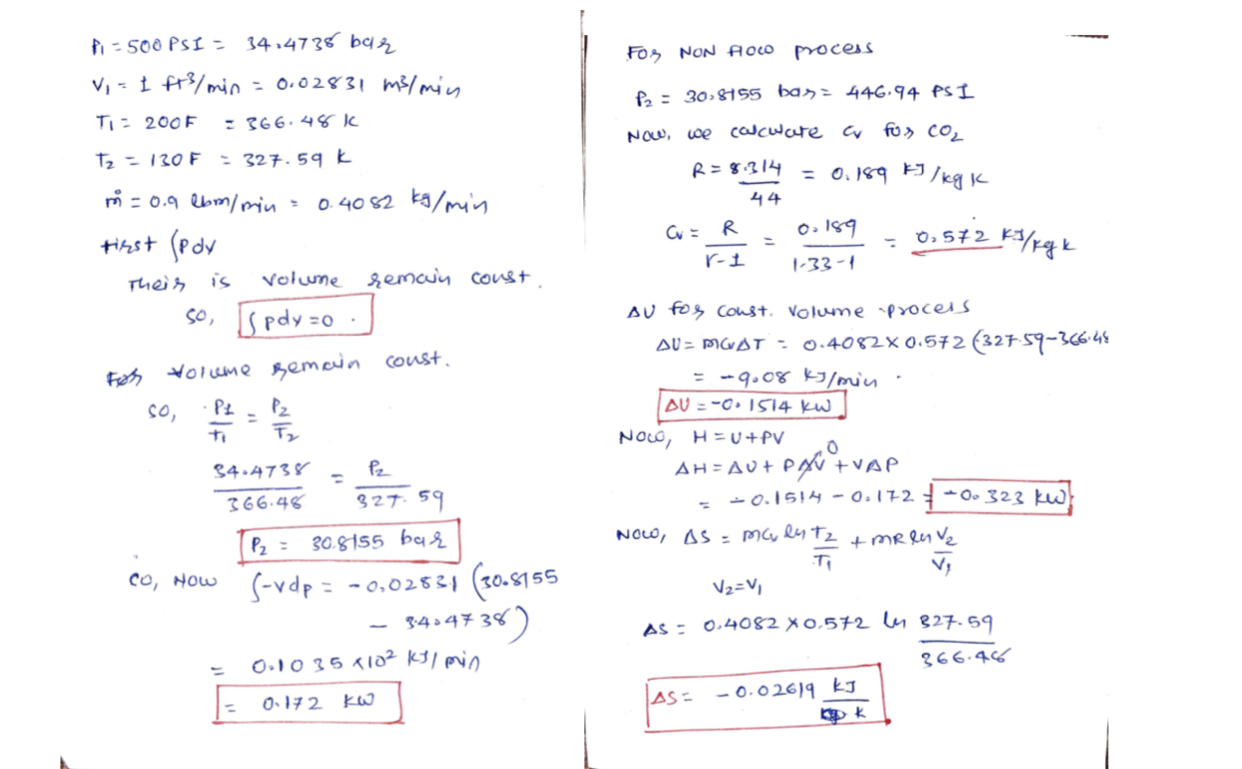 P1 = 500 PSI = 34.4738 bar
V1 = 1 ft³/min = 0.02831 m³/min
T1 = 200F = 366.48 K
T2 = 130F = 327.59 K
ṁ = 0.9 lbm/min = 0.4082 kg/min
First ∫Pdv
Their is volume remain const.
so, ∫pdv=0.
For volume remain const.
so, P1/T1 = P2/T2
34.4738/366.48 = P2/327.59
P2 = 30.8155 bar
so, Now ∫-vdp = -0.02831 (30.8155
- 34.4738)
= 0.1035 x10² kJ/min
= 0.172 kW
For NON Flow process
P2 = 30.8155 bar = 446.94 PSI
Now, we calculate Cv for CO2
R = 8.314/44 = 0.189 kJ/kg K
Cv = R/r-1 = 0.189/1.33-1 = 0.572 kJ/kg k
ΔU for const. volume process
ΔU = mCvΔT = 0.4082 X 0.572 (327.59-366.48
= -9.08 kJ/min.
ΔU = -0.1514 kW
Now, H = U+PV
ΔH = ΔU + PΔV⁰ + VΔP
= -0.1514 - 0.172 = -0.323 kW
Now, ΔS = mCv ln T2/T1 + mR ln V2/V1
V2=V1
ΔS = 0.4082 X 0.572 ln 327.59/366.48
ΔS = -0.02619 kJ/k